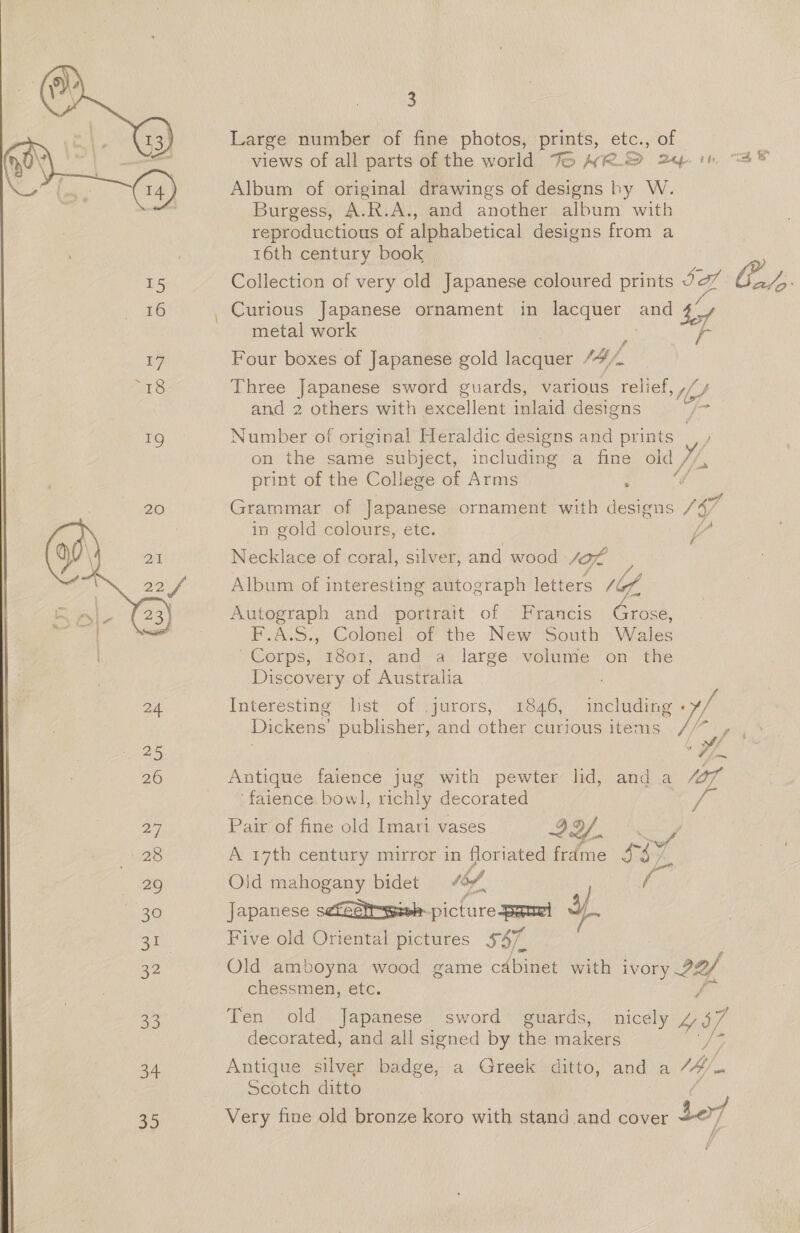 3
13 Large number of fine photos, prints, etc., of
views of all parts of the world To HRS 24. 11. 38
14 Album of original drawings of designs by W.
Burgess, A.R.A., and another album with
reproductions of alphabetical designs from a
16th century book
15 Collection of very old Japanese coloured prints
16 Curious Japanese ornament in lacquer and
metal work
17 Four boxes of Japanese gold lacquer 14/-
18 Three Japanese sword guards, various relief,
and 2 others with excellent inlaid designs
19 Number of original Heraldic designs and prints
on the same subject, including a fine old
print of the College of Arms
20 Grammar of Japanese ornament with designs
in gold colours, etc.
21 Necklace of coral, silver, and wood 10/-
22 Album of interesting autograph letters
23 Autograph and portrait of Francis Grose,
F.A.S., Colonel of the New South Wales
Corps, 1801, and a large volume on the
Discovery of Australia
24 Interesting list of jurors, 1846, including
Dickens' publisher, and other curious items
25
26 Antique faience jug with pewter lid, and a
faience bowl, richly decorated
27 Pair of fine old Imari vases 22/-
28 A 17th century mirror in floriated frame
29 Old mahogany bidet
30 Japanese picture panel
31 Five old Oriental pictures
32 Old amboyna wood game cabinet with ivory 22/-
chessmen, etc.
33 Ten old Japanese sword guards, nicely
decorated, and all signed by the makers
34 Antique silver badge, a Greek ditto, and a 14/-
Scotch ditto
35 Very fine old bronze koro with stand and cover